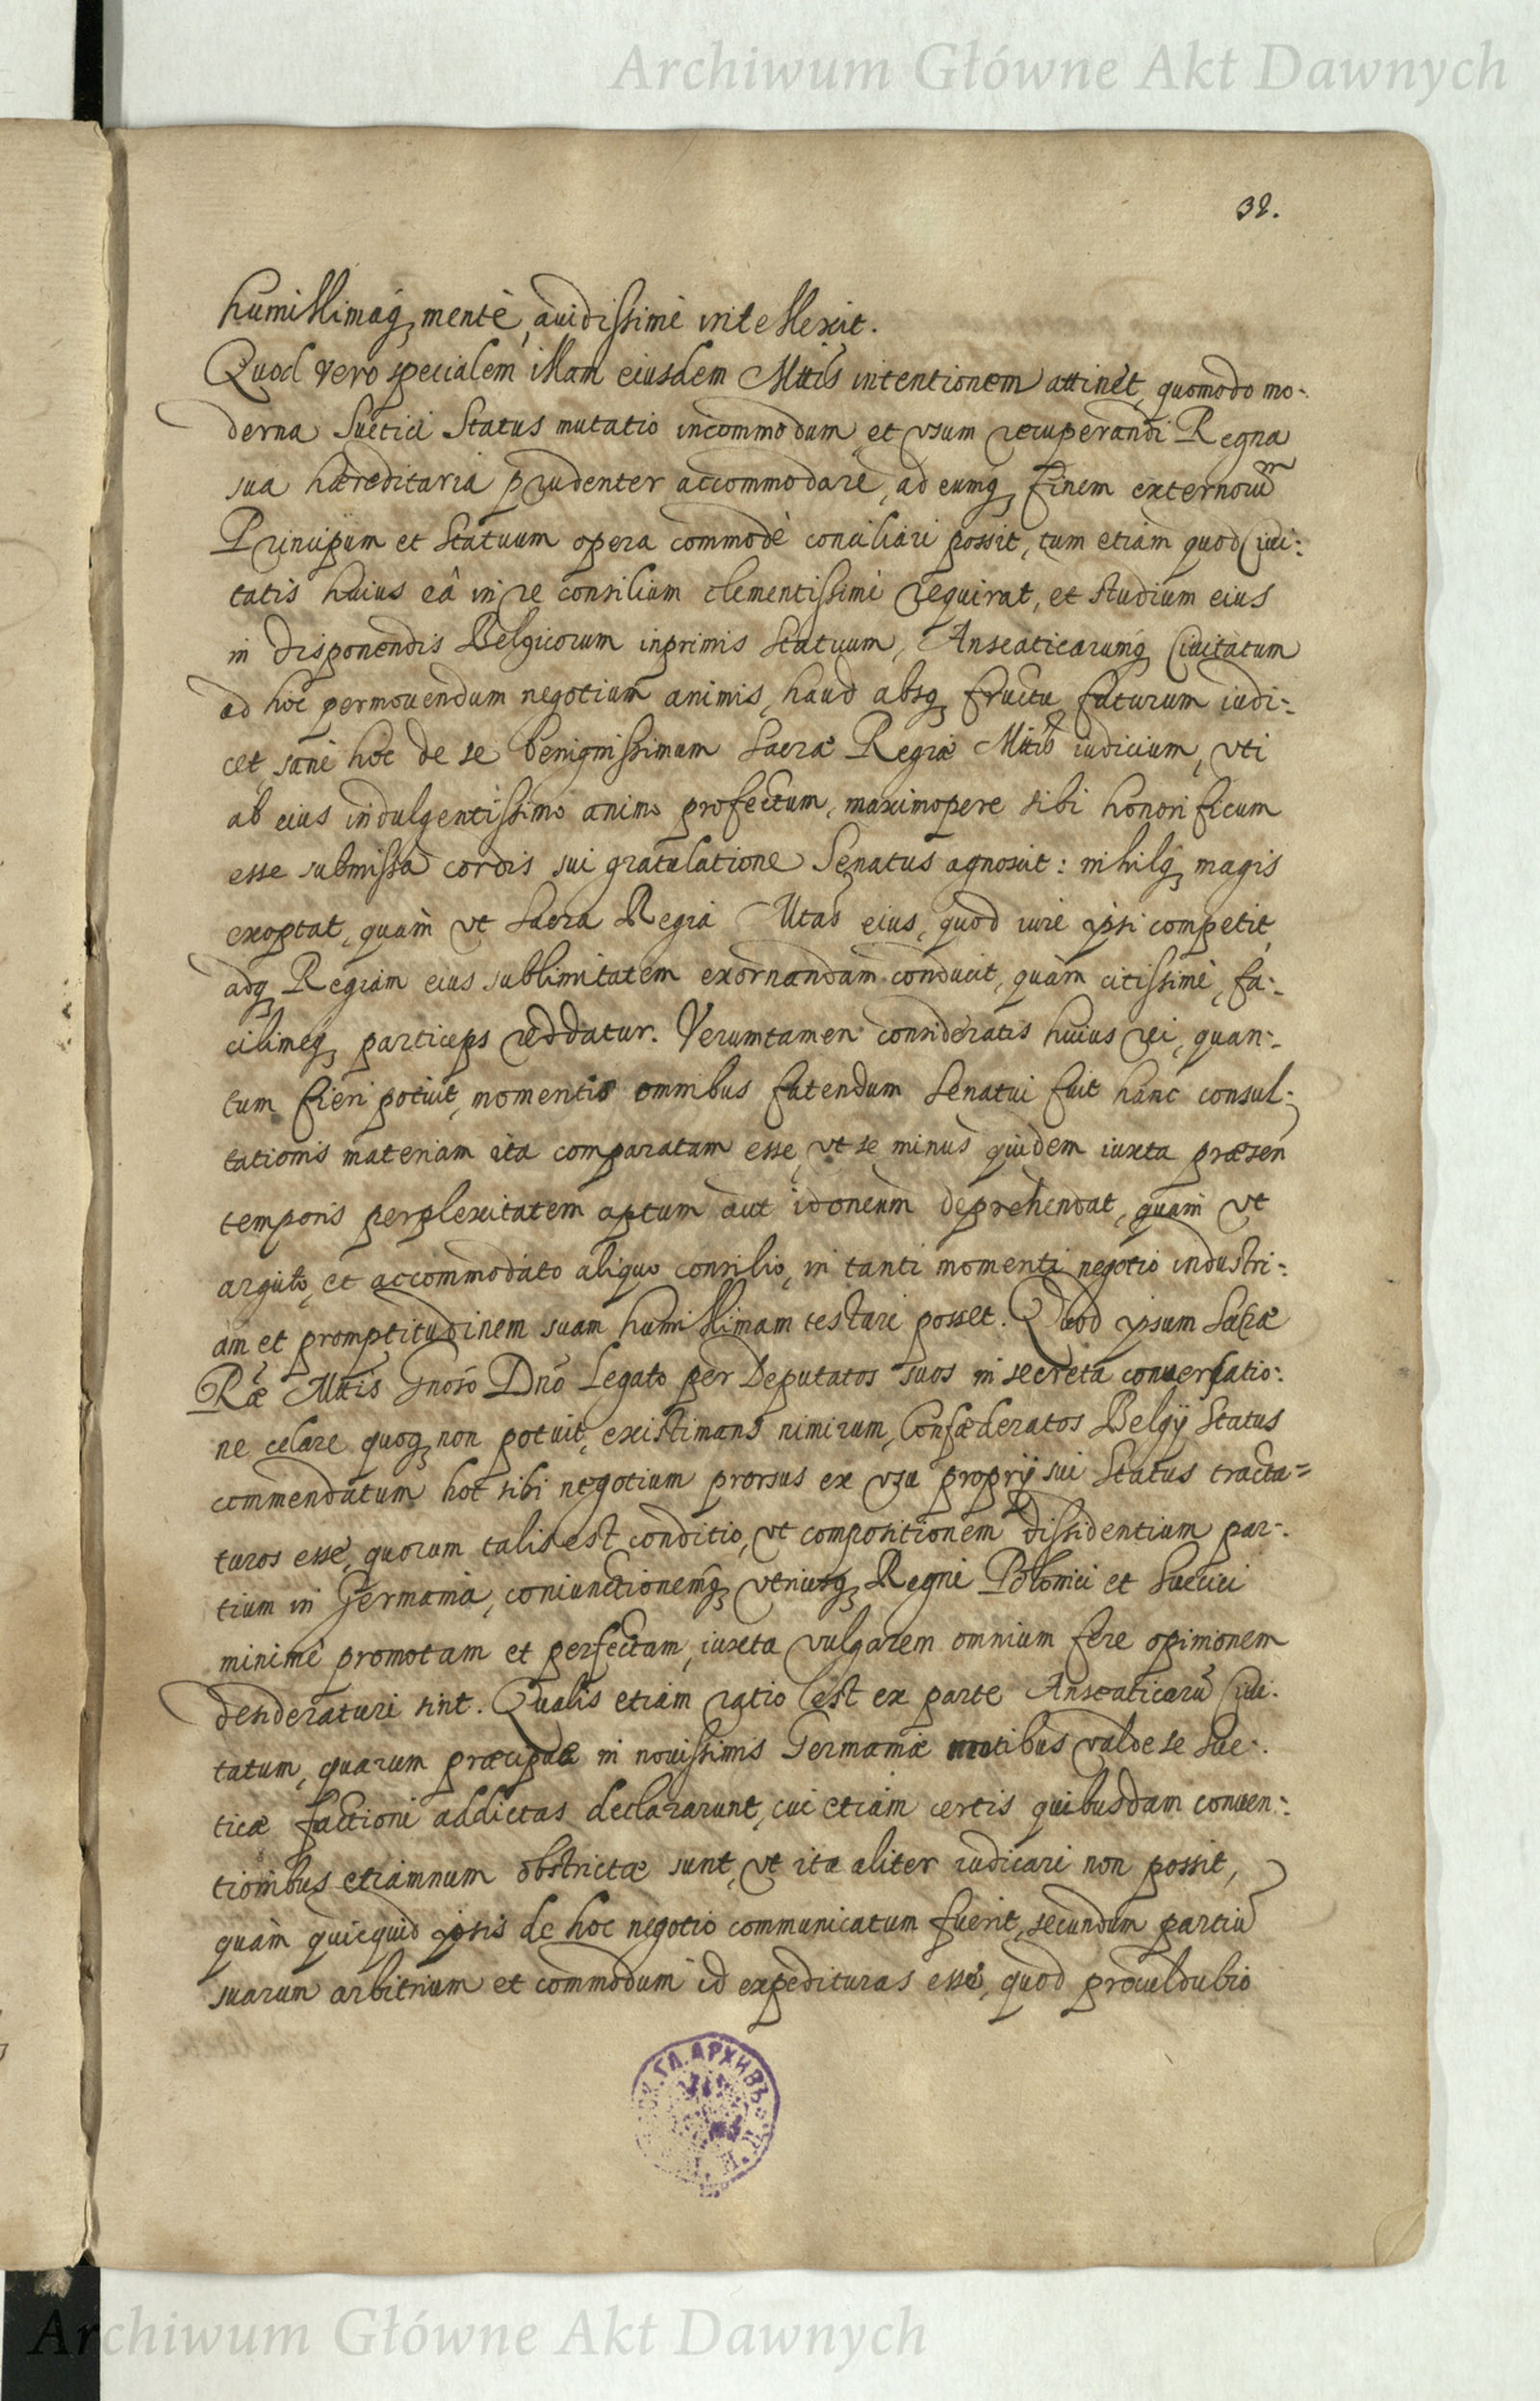 Archiwum Główne Akt Dawnych
32.
humillimaq, mente, auidissimè intellexit.
Quod vero specialem illam eiusdem Mttis intentionem attinet, quomodo mo-
derna Suetici Status mutatio incommodum, et vsum recuperandi Regna
sua hæreditaria prudenter accommodare, ad eumq, finem externorū
Principum et Statuum opera commodè conciliari possit, tum etiam quod Ciui:
tatis huius eâ in re consilium clementissimè requirat, et studium eius
in disponendis Belgicorum inprimis Statuum, Anseaticarumq, Ciuitatum
ad hoc permouendum negotium animis, haud absq, fructu futurum iudi:
cet, sanè hoc de se benignissimum Sacræ Regiæ Mttis iudicium, vti
ab eius indulgentissimo animo profectum, maximopere sibi honorificum
esse submissa cordis sui gratulatione Senatus agnoscit: nihilq, magis
exoptat, quàm vt Sacra Regia Mtas eius, quod iure ipsi competit,
adq, Regiam eius sublimitatem exornandam conducit, quàm citissimè, fa:
cilimeq, particeps reddatur. Verumtamen consideratis huius rei, quan:
tum fieri potuit, momentis omnibus fatendum Senatui fuit hanc consul:
tationis materiam ita comparatam esse, vt se minus quidem iuxta præsen
temporis perplexitatem aptum aut idoneum deprehendat, quàm vt
arguto, et accommodato aliquo consilio, in tanti momenti negotio industri:
am et promptitudinem suam humillimam testari posset. Quod ipsum Sacræ
Ræ Mttis Gnoso Dno Legato per Deputatos suos in secreta conuersatio:
ne celare quoq, non potuit, existimans nimirum, Confæderatos Belgij Status
commendatum hoc sibi negotium prorsus ex vsu proprij sui Status tracta=
turos esse, quorum talis est conditio, vt compositionem dissidentium par:
tium in Germania, coniunctionemq, vtriusq, Regni Polonici et Suecici
minimè promotam et perfectam, iuxta vulgarem omnium fere opinionem
desideraturi sint. Qualis etiam ratio est ex parte Anseaticarū Ciui:
tatum, quarum præcipuæ in nouissimis Germaniæ motibus valde se Sue:
ticæ factioni addictas declararunt, cui etiam certis quibusdam conuen:
tionibus etiamnum obstrictæ sunt, vt ita aliter iudicari non possit,
quàm quicquid ipsis de hoc negotio communicatum fuerit, secundum partiū
suarum arbitrium et commodum id expedituras esse, quod proculdubio
ГЛ. АРХИВЪ
Archiwum Główne Akt Dawnych